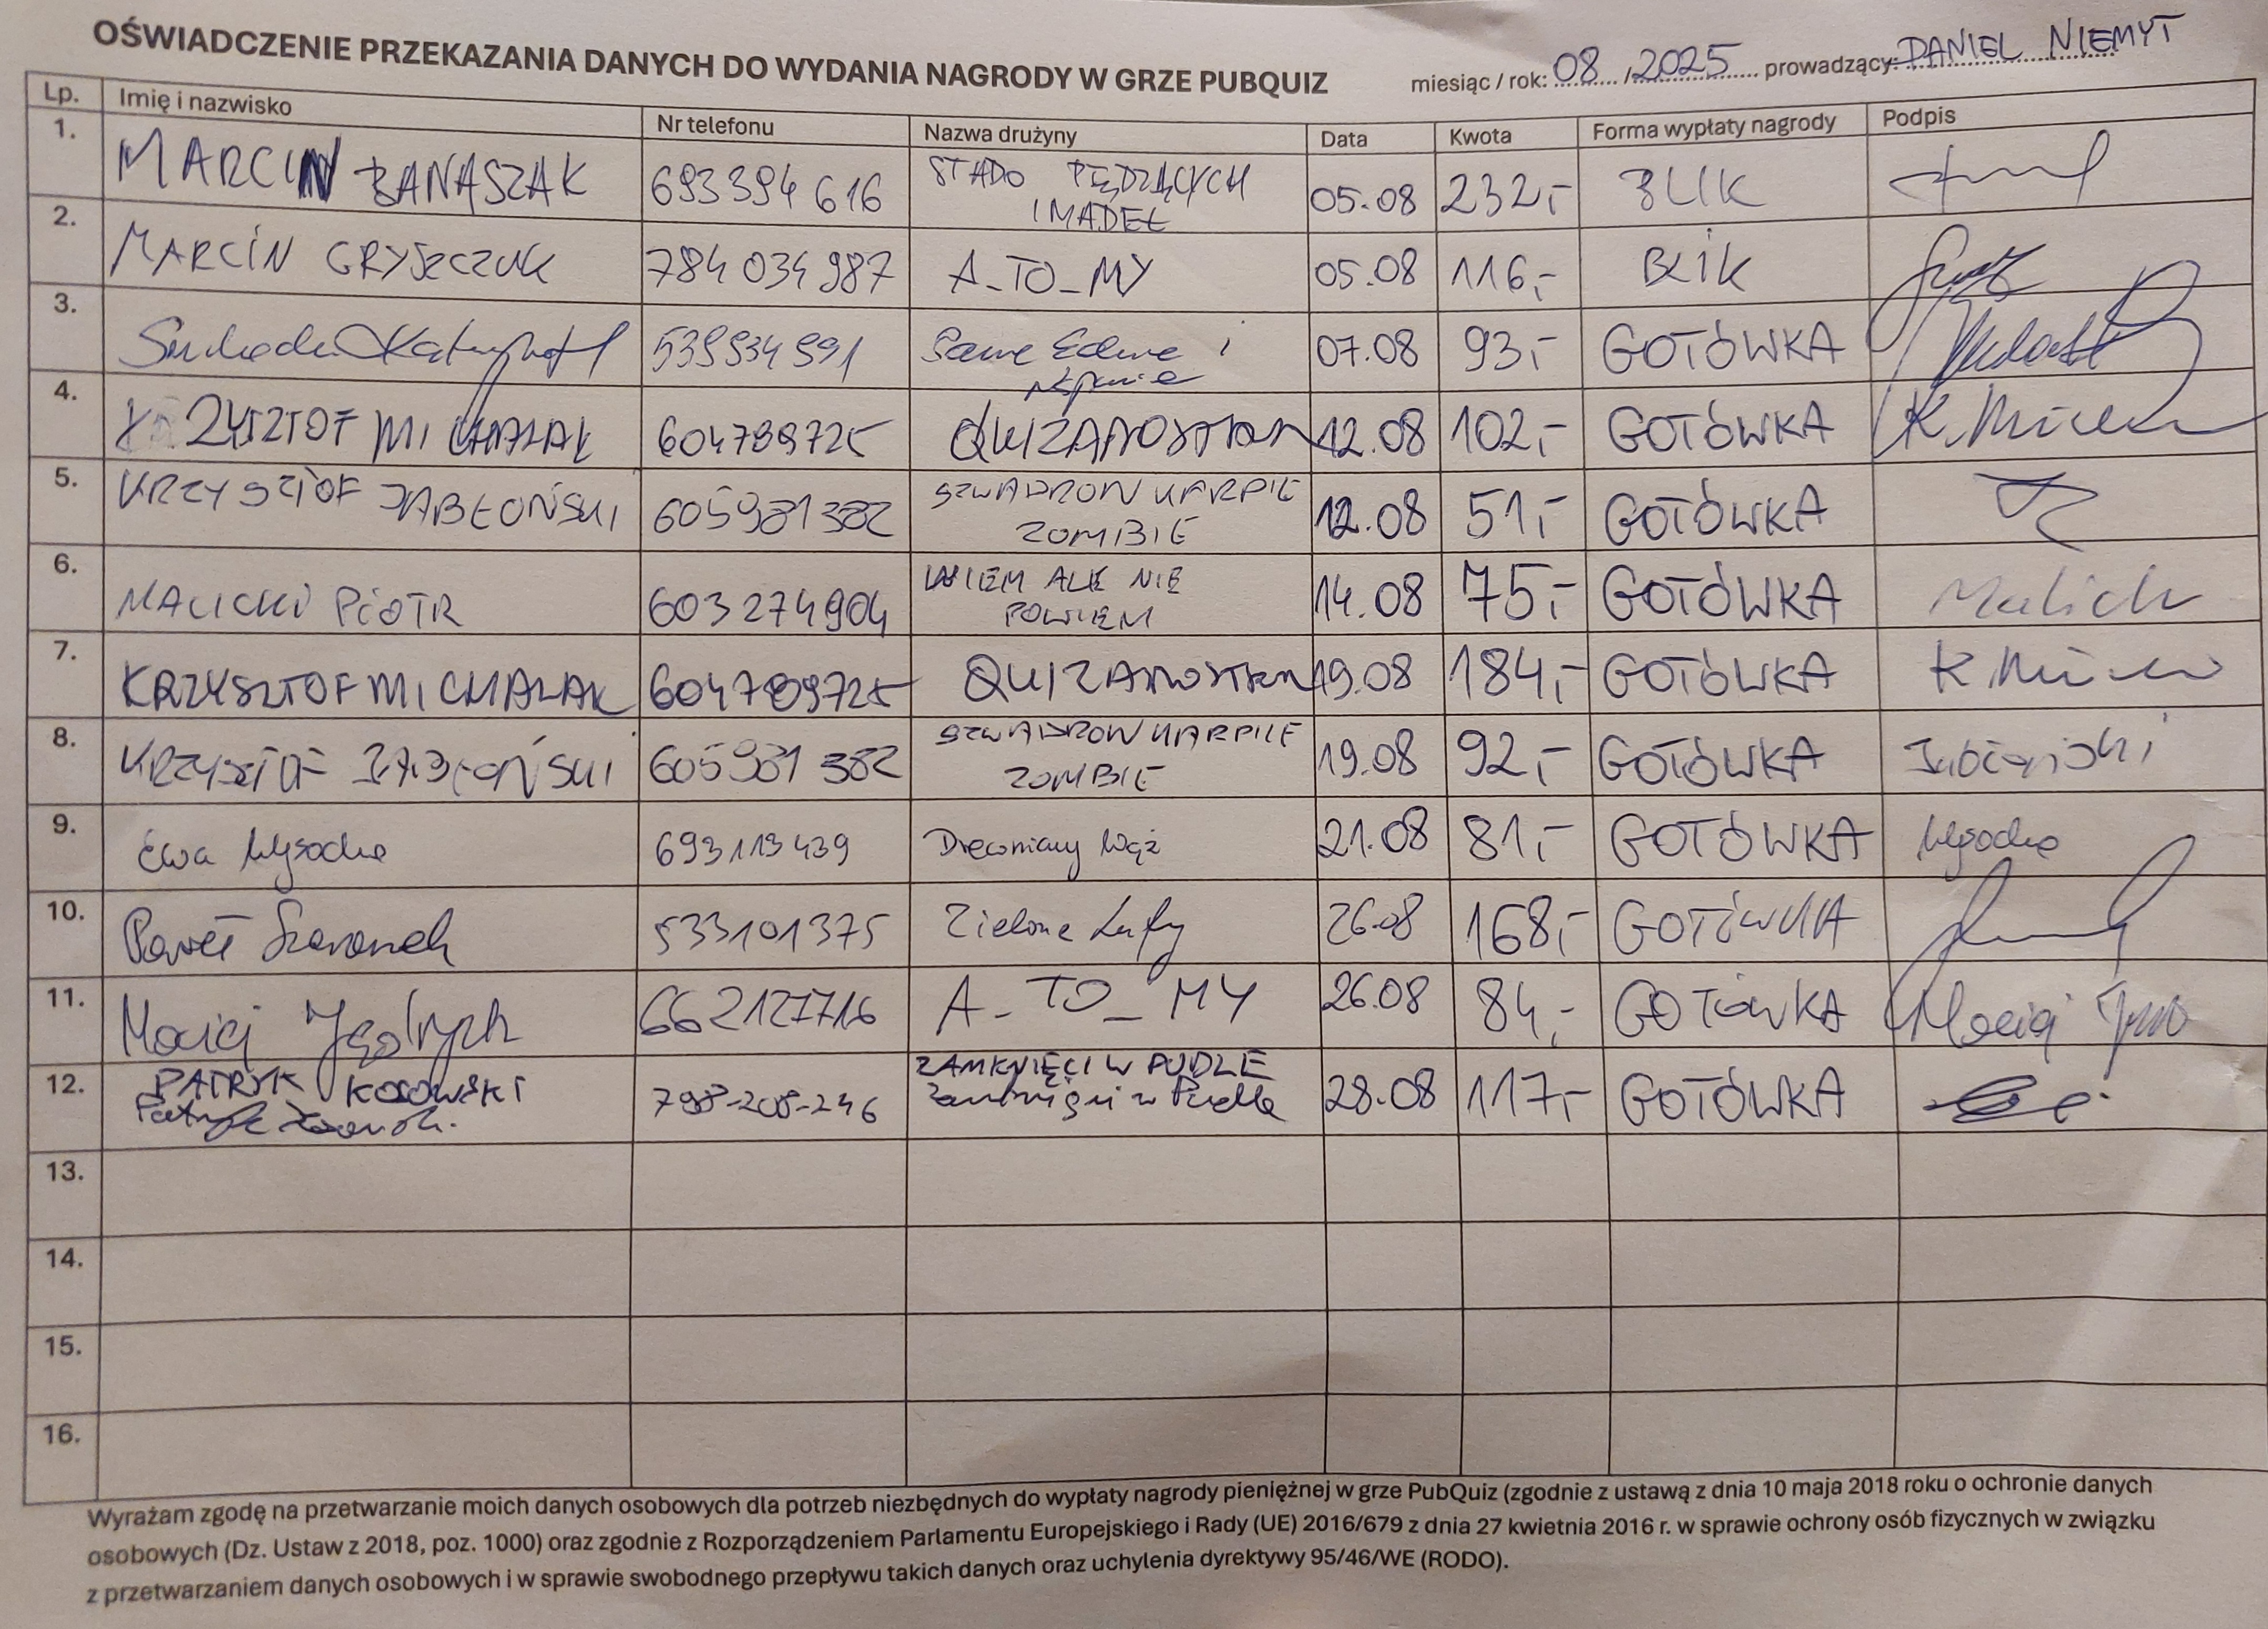 OŚWIADCZENIE PRZEKAZANIA DANYCH DO WYDANIA NAGRODY W GRZE PUBQUIZ miesiąc / rok: 08 / 2025 prowadzący: DANIEL NIEMYT
Lp. Imię i nazwisko Nr telefonu Nazwa drużyny Data Kwota Forma wypłaty nagrody Podpis
1. MARCIN BANASZAK 693 394 616 STADO PĘDZĄCYCH IMADEŁ 05.08 232,- BLIK
2. MARCIN GRYSZCZUK 784 034 987 A_TO_MY 05.08 116,- BLIK
3. 07.08 93,- GOTÓWKA
4. KRZYSZTOF MICHALAK 604789725 12.08 102,- GOTÓWKA
5. KRZYSZTOF JABŁOŃSKI 605981382 SZWADRON KARPIE ZOMBIE 12.08 51,- GOTÓWKA
6. MALICKI PIOTR 603 274904 WIEM ALE NIE POWIEM 14.08 75,- GOTÓWKA Malicki
7. KRZYSZTOF MICHALAK 604789725 19.08 184,- GOTÓWKA
8. KRZYSZTOF JABŁOŃSKI 605981 382 SZWADRON KARPIE ZOMBIE 19.08 92,- GOTÓWKA Jabłoński
9. Ewa Wysocka 693113439 Drewniany Wąż 21.08 81,- GOTÓWKA Wysocka
10. Paweł 533101375 Zielone Lufy 26.08 168,- GOTÓWKA
11. Maciej 662127716 A_TO_MY 26.08 84,- GOTÓWKA Maciej
12. PATRYK KOSOWSKI 798-208-246 ZAMKNIĘCI W PUDLE 28.08 117,- GOTÓWKA
13.
14.
15.
16.
Wyrażam zgodę na przetwarzanie moich danych osobowych dla potrzeb niezbędnych do wypłaty nagrody pieniężnej w grze PubQuiz (zgodnie z ustawą z dnia 10 maja 2018 roku o ochronie danych
osobowych (Dz. Ustaw z 2018, poz. 1000) oraz zgodnie z Rozporządzeniem Parlamentu Europejskiego i Rady (UE) 2016/679 z dnia 27 kwietnia 2016 r. w sprawie ochrony osób fizycznych w związku
z przetwarzaniem danych osobowych i w sprawie swobodnego przepływu takich danych oraz uchylenia dyrektywy 95/46/WE (RODO).